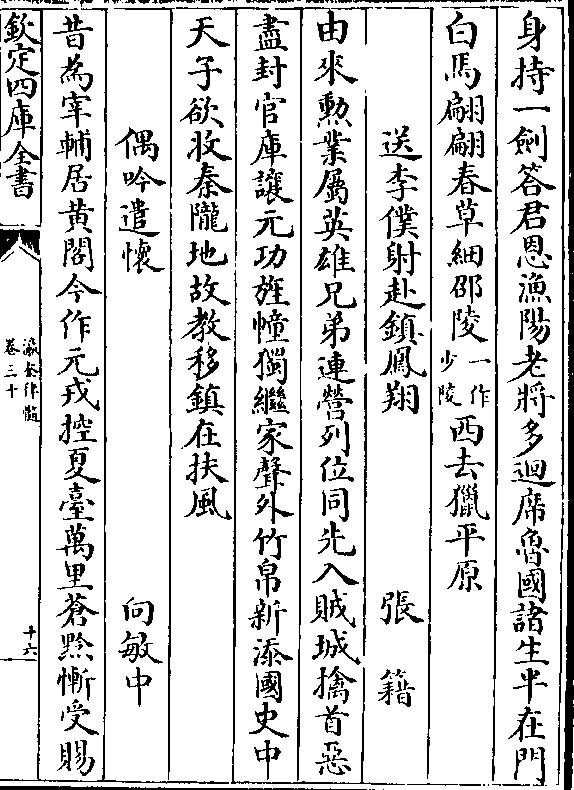 身持一劍答君恩漁陽老將多迴席魯國諸生半在門
白馬翩翩春草細邵陵一作少陵西去獵平原
送李僕射赴鎮鳳翔　張籍
由來勲業屬英雄兄弟連營列位同先入賊城擒首惡
盡封官庫讓元功旌幢獨繼家聲外竹帛新添國史中
天子欲收秦隴地故教移鎮在扶風
偶吟遣懷　向敏中
昔為宰輔居黄閣今作元戎控夏臺萬里蒼黔慚受賜
欽定四庫全書
瀛奎律髓
卷三十
十六